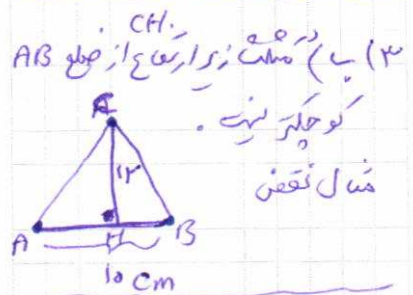 CH.
۳) ب) در مثلث زیر ارتفاع از ضلع AB
کوچکتر نیست.
مثال نقض
C
۱۲
A H B
۱۰ cm